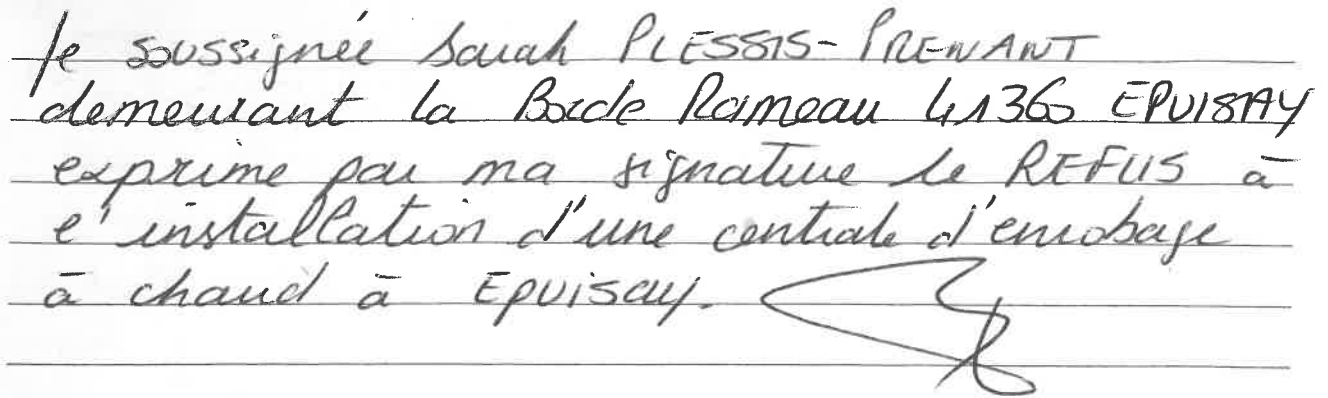 Je soussignée Sarah PLESSIS-PRENANT
demeurant la Borde Rameau 41360 EPUISAY
exprime par ma signature le REFUS à
l'installation d'une centrale d'enrobage
à chaud à Epuisay.